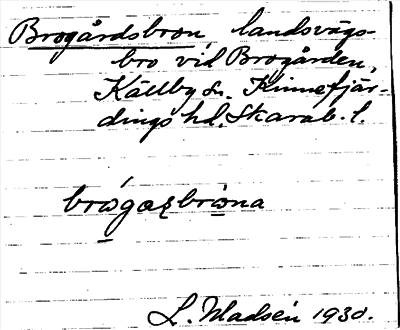 Brogårdsbron, landsvägs-
bro vid Brogården,
Källby sn. Kinnefjär-
dings hd. Skarab. l.
L. Madsén 1930.